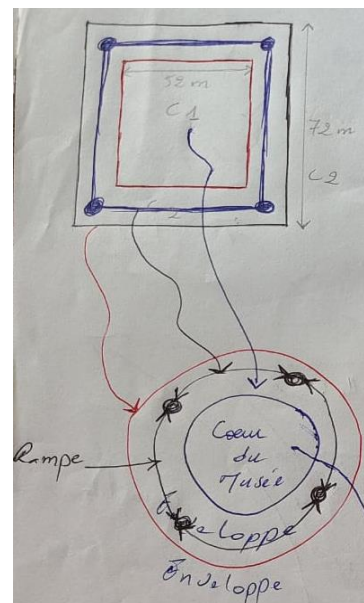 52 m
C1
72 m
C2
C2
Rampe
Coeur
du
Musée
Enveloppe
Enveloppe